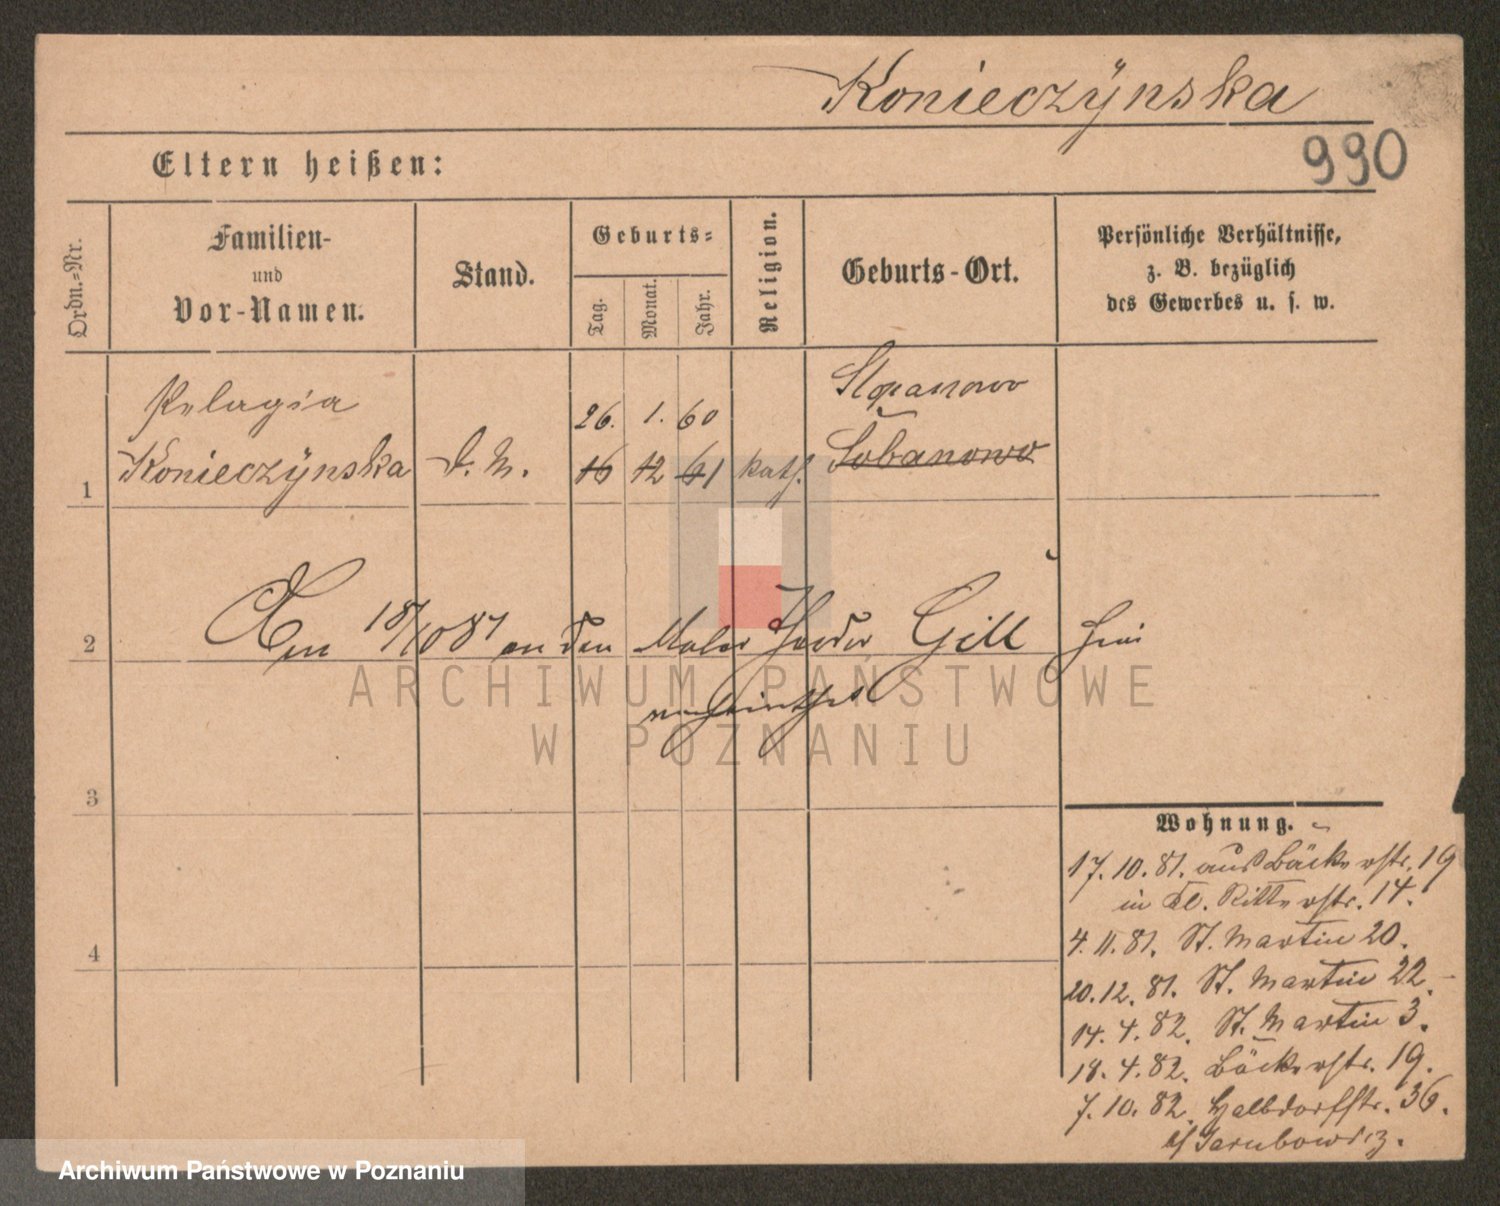 Konieczÿnska
990
Eltern heißen:
Ordn.-Nr.
Familien-
und
Vor-Namen.
Stand.
Geburts-
Tag.
Monat.
Jahr.
Religion.
Geburts-Ort.
Persönliche Verhältnisse,
z. B. bezüglich
des Gewerbes u. s. w.
Pelagia
26. 1. 60
1 Konieczÿnska d. M. 16 12 61 kath. Lobanowo
2 Am 18/10 87 an den Maler Gill hier
verheirathet
ARCHIWUM PAŃSTWOWE
W POZNANIU
3
4
Wohnung.
17. 10. 81. aus Bäckerstr. 19
in Kl. Ritterstr. 14.
4. 11. 81. St. Martin 20.
20. 12. 81. St. Martin 22.
14. 4. 82. St. Martin 3.
18. 4. 82. Bäckerstr. 19.
7. 10. 82. Halbdorfstr. 36.
Archiwum Państwowe w Poznaniu